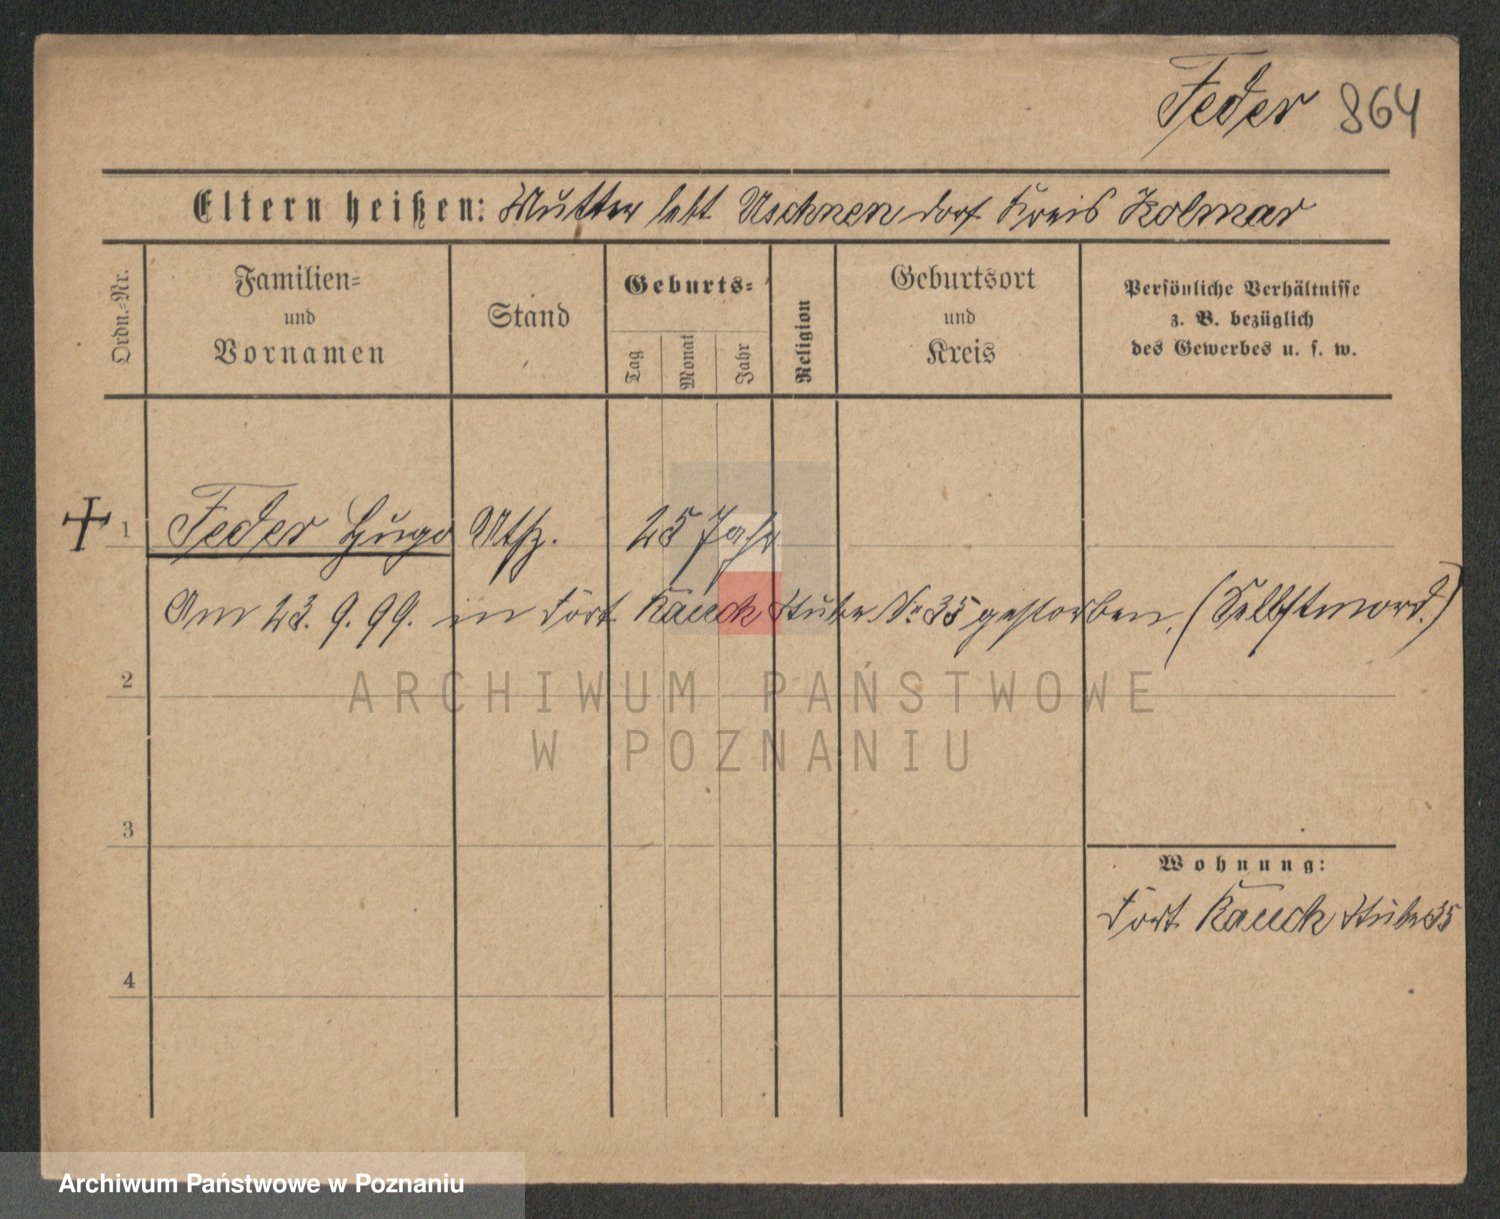 Feder 864
Eltern heißen: Mutter lebt Uschnendorf Kreis Kolmar
Ordn.-Nr.
Familien-
und
Vornamen
Stand
Geburts-
Tag
Monat
Jahr
Religion
Geburtsort
und
Kreis
Persönliche Verhältnisse
z. B. bezüglich
des Gewerbes u. s. w.
1 Feder Hugo Utfz. 25 Jahr
Am 23.9.99. in Fort Rauch Stube Nr 35 gestorben, (Selbstmord.)
2
ARCHIWUM PAŃSTWOWE
W POZNANIU
3
Wohnung:
Fort Rauch Stube 35
4
Archiwum Państwowe w Poznaniu